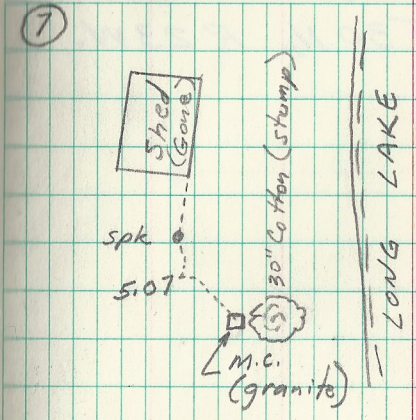 7
Shed
(Gone)
30" Cotton (stump)
LONG LAKE
spk
5.07
M.C.
(granite)